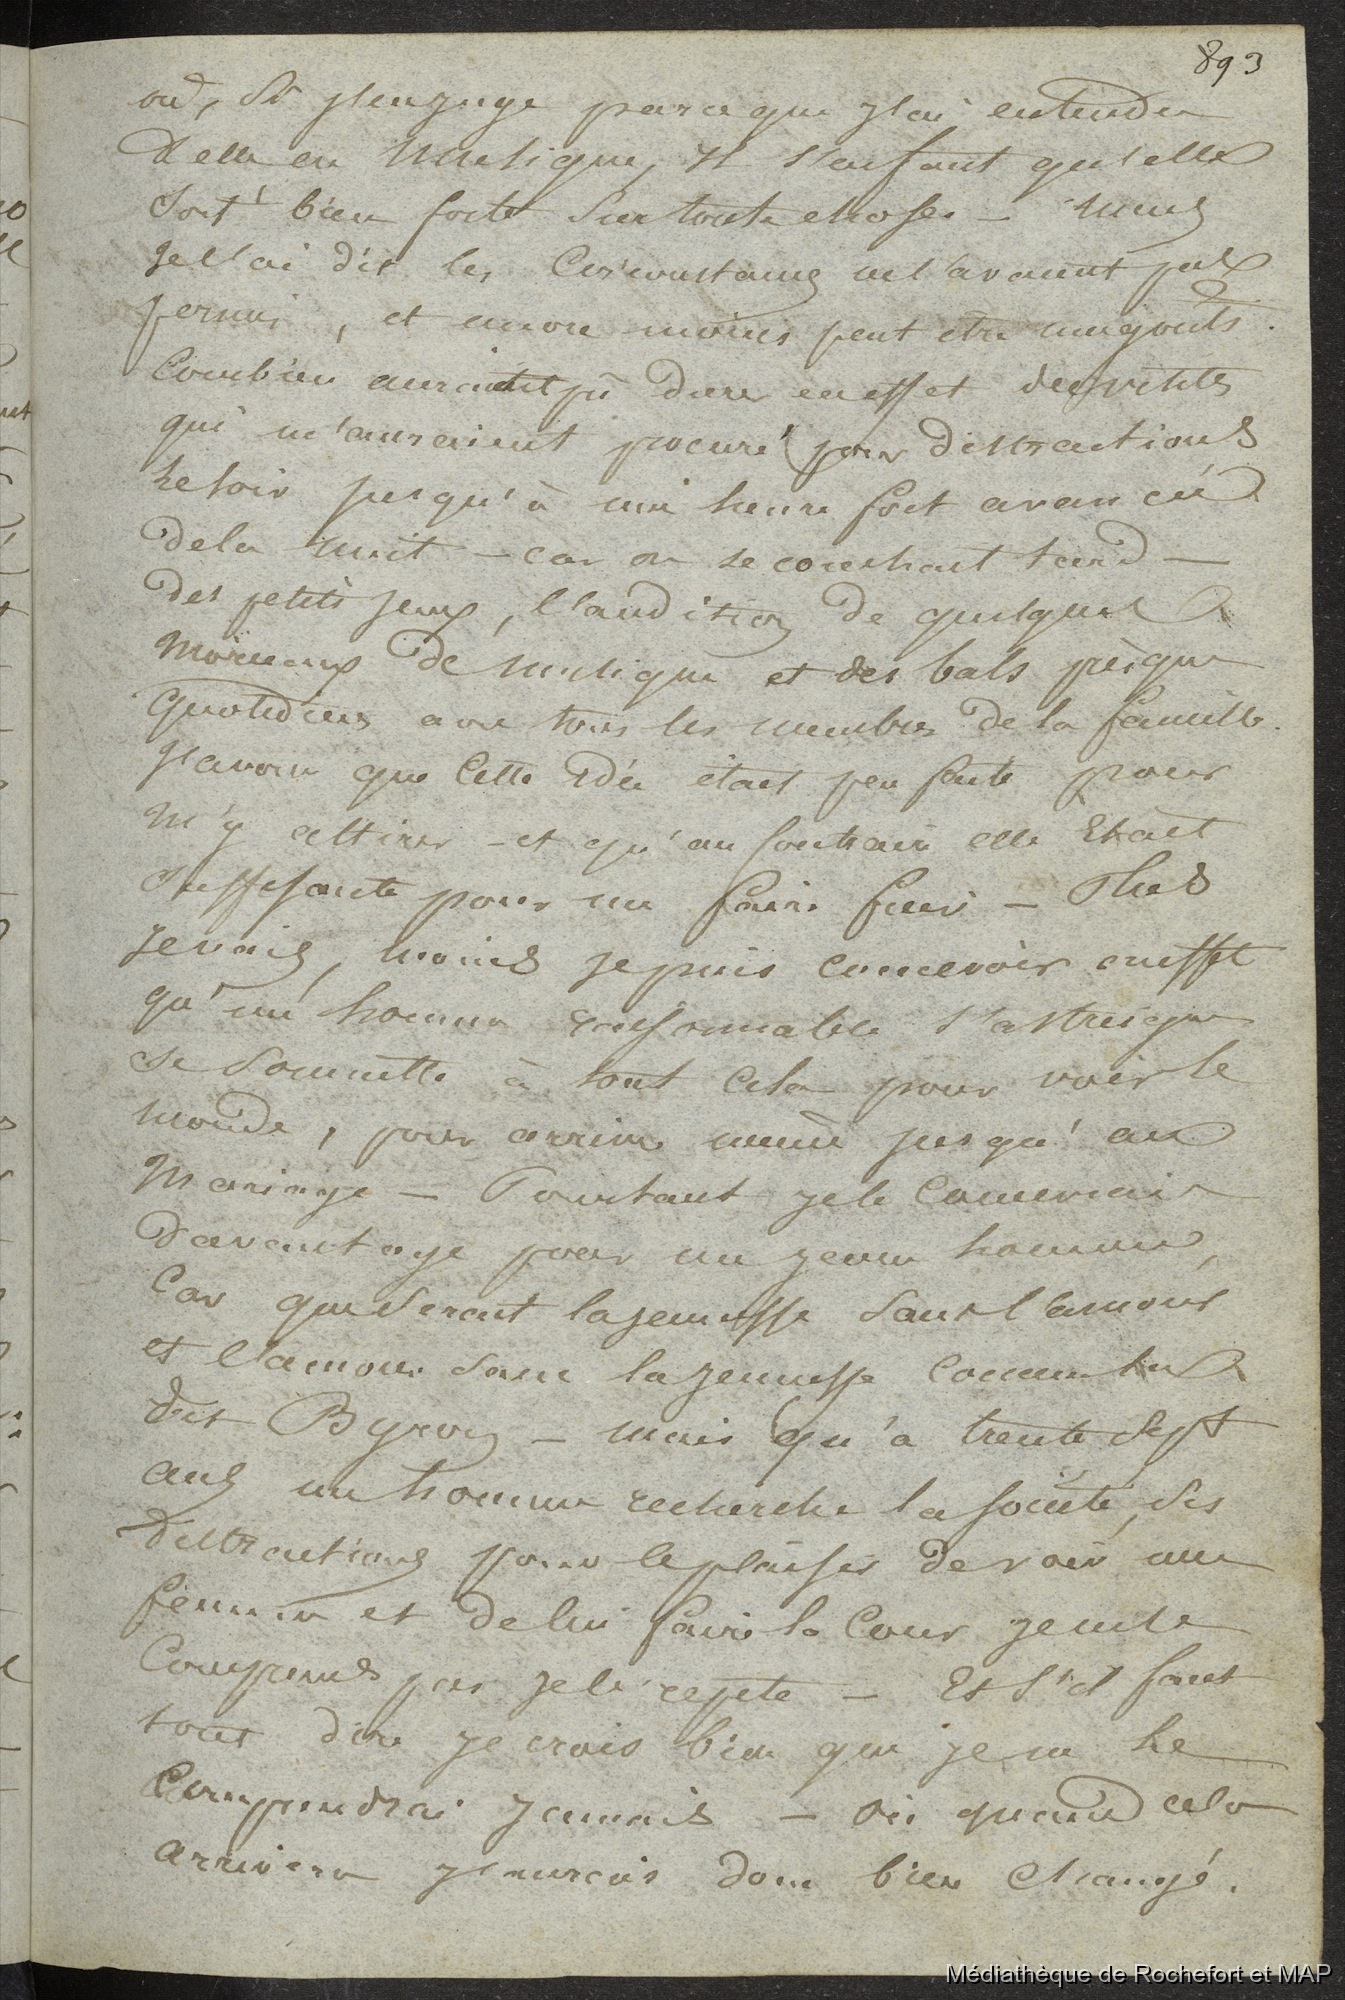 893
où, Si j'en juge parceque j'ai entendu
d'elle en Musique, Il s'en faut qu'elle
soit bien forte Sur toute chose - mais
Je l'ai dit les Circonstances ne l'avaient pas
permis, et encore moins peut etre mes gouts.
Combien auraient pû durer en effet des visites
qui m'auraient procuré pour distractions
le soir jusqu'à une heure fort avancée
de la nuit - car on se couchait tard -
des petits jeux, l'audition de quelques
Morceaux de musique et des bals presque
quotidiens avec tous les membres de la famille.
J'avoue que Cette Idée était peu faite pour
M'y attirer - et qu'au Contraire elle Etait
suffisante pour me faire fuir - Plus
Je vais, moins je puis concevoir en effet
qu'un homme raisonnable s'astreigne
se Soumette à tout Cela pour voir le
monde, pour arriver même jusqu'au
Mariage - Pourtant je le Concevrais
davantage pour un jeune homme,
Car que Serait la jeunesse Sans l'amour
et l'amour Sans la jeunesse Comme l'a
dit Byron - mais qu'à trente Sept
ans un homme recherche la Société, des
distractions pour le plaisir de voir une
femme et de lui faire la Cour je ne le
Comprends pas je le répète - Et S'il faut
tout dire je crois bien que je ne le
Comprendrai Jamais - ou quand cela
arrivera j'aurais donc bien changé.
Médiathèque de Rochefort et MAP